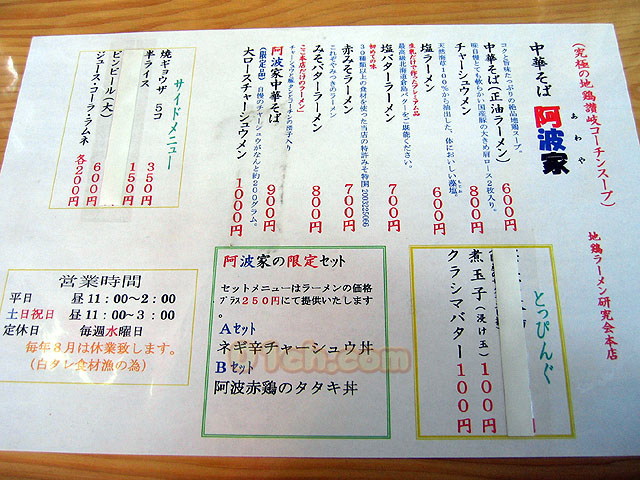 (究極の地鶏讃岐コーチンスープ)
中華そば 阿波家
あわや
地鶏ラーメン研究会本店
コクと旨味たっぷりの絶品地鶏スープ。
中華そば(正油ラーメン) 600円
味自慢とても軟らかい国産豚の大きめ肩ロース2枚入り。
チャーシュウメン 800円
天然海草100%から抽出した、体においしい藻塩。
塩ラーメン 600円
生乳だけで作ったプレミアム品
最高級北海道倉島バターをご堪能ください。
塩バターラーメン 700円
初めての味
30種類以上の食材を使った当店の特許みそ特開2003225066
赤みそラーメン 700円
これぞやみつきのラーメン
みそバターラーメン 800円
ここ本店だけのラーメン
チャーシュウと豚タンとコーチンの団子入り
阿波家中華そば 900円
(限定10杯) 自慢のチャーシュウがなんと約200グラム。
大ロースチャーシュウメン 1000円
サイドメニュー
焼ギョウザ 5コ 350円
半ライス 150円
ビンビール(大) 600円
ジュース・コーラ・ラムネ 各200円
とっぴんぐ
煮玉子(浅け玉) 100円
クラシマバター 100円
阿波家の限定セット
セットメニューはラーメンの価格
プラス250円にて提供いたします
。
Aセット
ネギ辛チャーシュウ丼
Bセット
阿波赤鶏のタタキ丼
営業時間
平日 昼11:00〜2:00
土日祝日 昼11:00〜3:00
定休日 毎週水曜日
毎年8月は休業致します。
(白タレ食材漁の為)